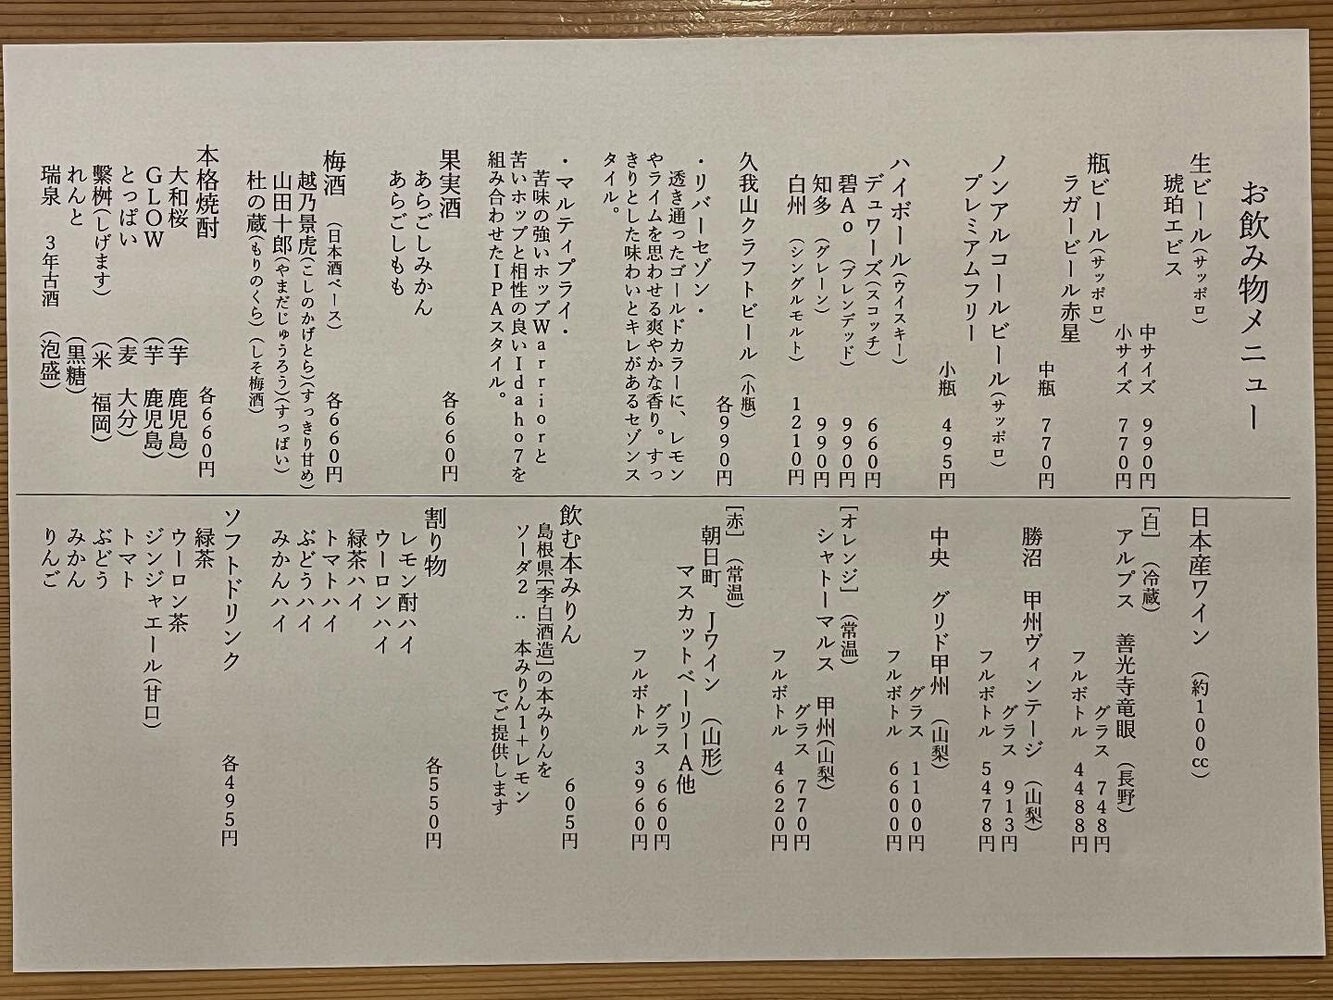 お飲み物メニュー
生ビール(サッポロ)
琥珀エビス
中サイズ 990円
小サイズ 770円
瓶ビール(サッポロ)
ラガービール赤星
中瓶 770円
ノンアルコールビール(サッポロ)
プレミアムフリー
小瓶 495円
ハイボール(ウイスキー)
デュワーズ(スコッチ) 660円
碧Ao (ブレンデッド) 990円
知多 (グレーン) 990円
白州 (シングルモルト) 1210円
久我山クラフトビール(小瓶)
各990円
・リバーセゾン・
透き通ったゴールドカラーに、レモン
やライムを思わせる爽やかな香り。すっ
きりとした味わいとキレがあるセゾンス
タイル。
・マルティプライ・
苦味の強いホップWarriorと
苦いホップと相性の良いIdaho7を
組み合わせたIPAスタイル。
果実酒 各660円
あらごしみかん
あらごしもも
梅酒 (日本酒ベース) 各660円
越乃景虎(こしのかげとら)(すっきり甘め)
山田十郎(やまだじゅうろう)(すっぱい)
杜の蔵(もりのくら)(しそ梅酒)
本格焼酎 各660円
大和桜 (芋 鹿児島)
GLOW (芋 鹿児島)
とっぱい (麦 大分)
繫桝(しげます) (米 福岡)
れんと (黒糖)
瑞泉 3年古酒 (泡盛)
日本産ワイン (約100cc)
[白] (冷蔵)
アルプス 善光寺竜眼 (長野)
グラス 748円
フルボトル 4488円
勝沼 甲州ヴィンテージ (山梨)
グラス 913円
フルボトル 5478円
中央 グリド甲州 (山梨)
グラス 1100円
フルボトル 6600円
[オレンジ] (常温)
シャトーマルス 甲州(山梨)
グラス 770円
フルボトル 4620円
[赤] (常温)
朝日町 Jワイン (山形)
マスカットベーリーA他
グラス 660円
フルボトル 3960円
飲む本みりん 605円
島根県[李白酒造]の本みりんを
ソーダ2 : 本みりん1+レモン
でご提供します
割り物 各550円
レモン酎ハイ
ウーロンハイ
緑茶ハイ
トマトハイ
ぶどうハイ
みかんハイ
ソフトドリンク 各495円
緑茶
ウーロン茶
ジンジャエール(甘口)
トマト
ぶどう
みかん
りんご